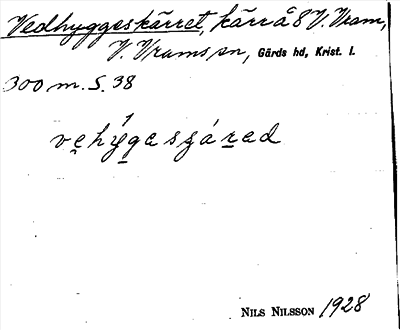 Vedhyggeskärret, kärr å 8 V. Vram,
V. Vrams sn, Gärds hd, Krist. l.
300 m. S. 38
vęhýgasʒárad
NILS NILSSON 1928